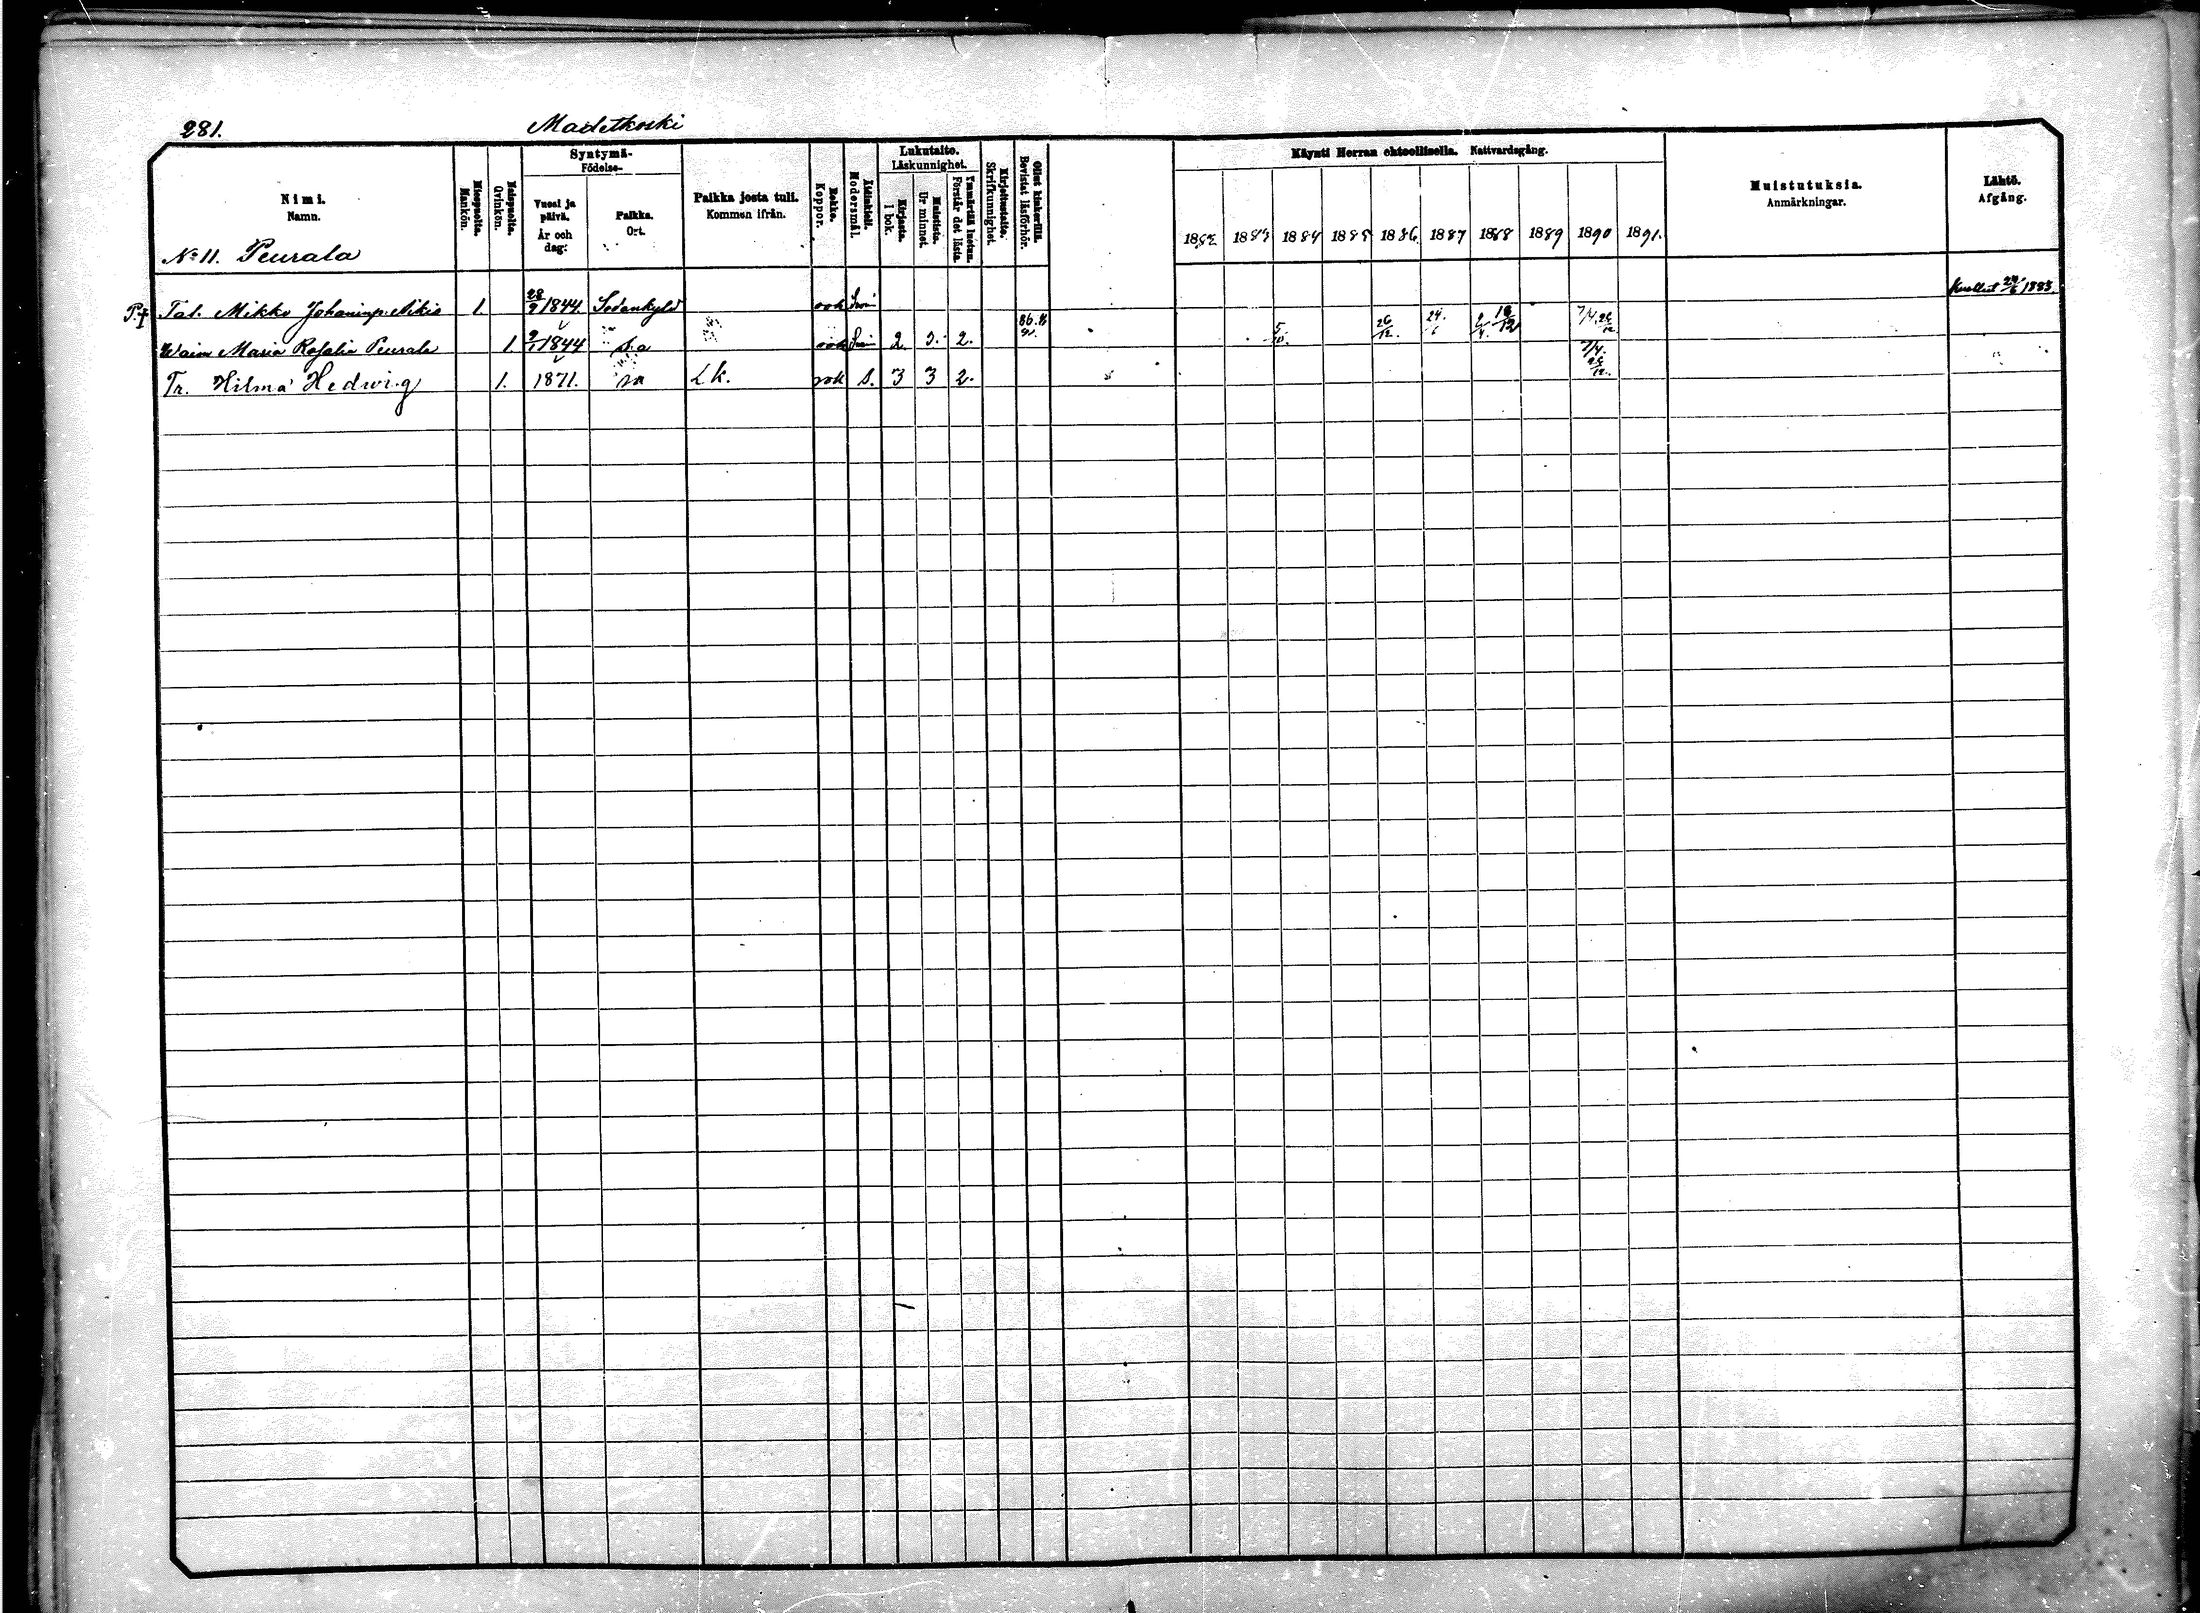 281. Madetkoski
Nimi. Namn.
Miespuolta. Mankön.
Naispuolta. Qvinkön.
Syntymä- Födelse-
Vuosi ja päivä. År och dag:
Paikka. Ort.
Paikka josta tuli. Kommen ifrån.
Rokko. Koppor.
Äidinkieli. Modersmål.
Lukutaito. Läskunnighet.
Kirjasta. I bok.
Muistista. Ur minnet.
Ymmärtää luetun. Förstår det lästa.
Kirjoitustaito. Skrifkunnighet.
Ollut kinkerillä. Bevistat läsförhör.
Käynti Herran ehtoollisella. Nattvardsgång.
1882 1883 1884 1885 1886 1887 1888 1889 1890 1891.
Muistutuksia. Anmärkningar.
Lähtö. Afgång.
No 11. Peurala
P. † Tal. Mikko Johaninp. Aikio 1. 28/9 1844. Sodankylä rok Kuollut 1883.
Waim Maria Rosalia Peurala 1. 1844 s.a rok 2. 3. 2. 5/10 26/12. 24/6 2/4. 16/12 7/4. 26/12
Tr. Hilma Hedwig 1. 1871. sa Lk. rok s. 3 3 2. 7/4. 26/12.